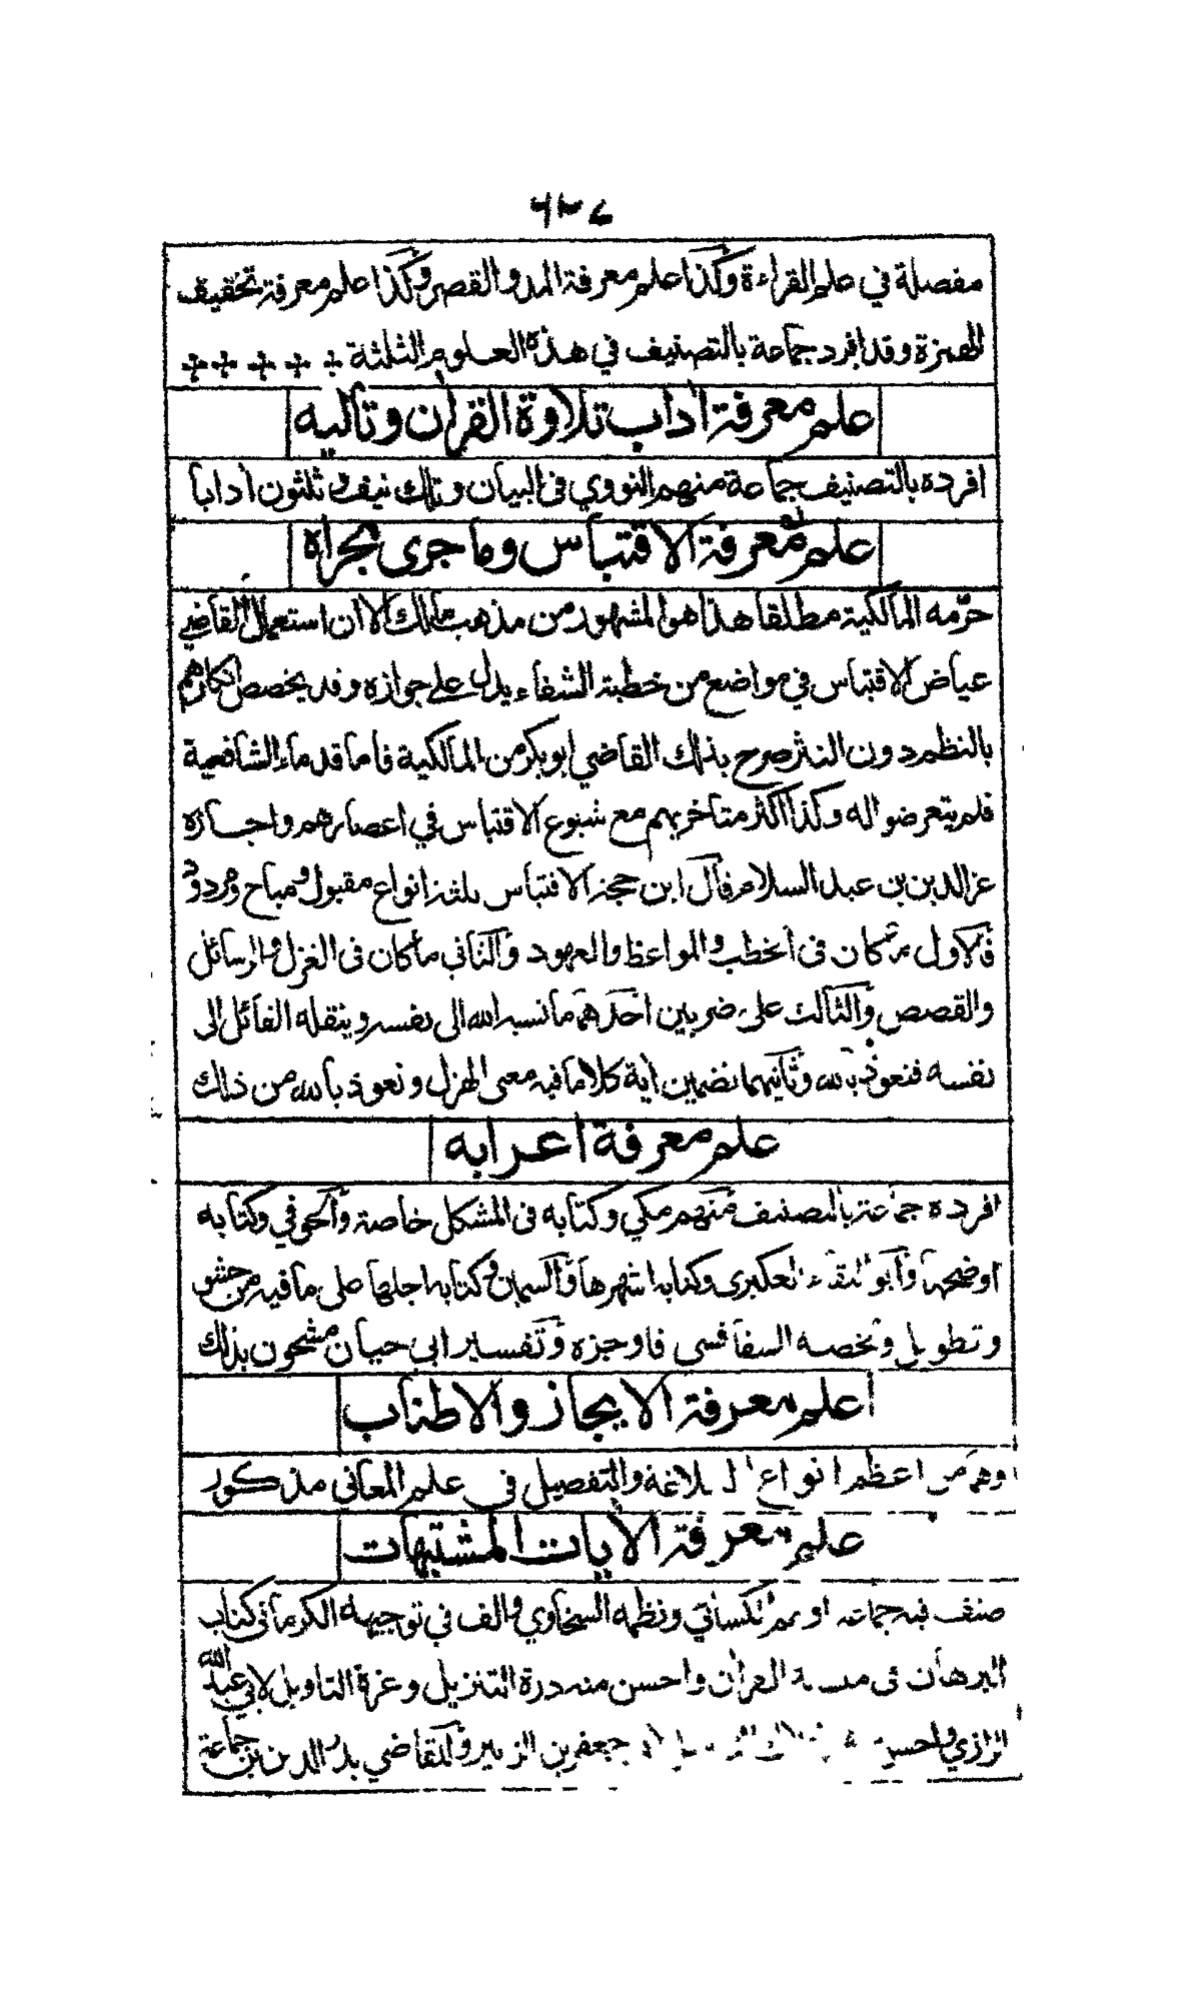 ٦٢٧
مفصلة في علم القراءة وكذا علم معرفة المد والقصر وكذا علم معرفة تخفيف
الهمزة وقد افرد جماعة بالتصنيف في هذه العلوم الثلثة
علم معرفة اداب تلاوة القران وتاليه
افرده بالتصنيف جماعة منهم النووي في التبيان وتلك نيف وثلثون ادابا
علم معرفة الاقتباس وما جرى مجراه
حرمه المالكية مطلقا هذا هو المشهور من مذهب مالك الا ان استعمال القاضي
عياض الاقتباس في مواضع من خطبة الشفاء يدل على جوازه وقد يخصص انكارهم
بالنظم دون النثر صرح بذلك القاضي ابو بكر من المالكية فاما قدماء الشافعية
فلم يتعرضوا له وكذا اكثر متاخريهم مع شيوع الاقتباس في اعصارهم واجازه
عز الدين بن عبد السلام فقال ابن حجة الاقتباس ثلثة انواع مقبول ومباح ومردود
فالاول ما كان في الخطب والمواعظ والعهود والثاني ما كان في الغزل والرسائل
والقصص والثالث على ضربين احدهما ما نسبه الله الى نفسه وينقله القائل الى
نفسه فنعوذ بالله وثانيهما تضمين اية كلاما فيه معنى الهزل ونعوذ بالله من ذلك
علم معرفة اعرابه
افرده جماعة بالتصنيف منهم مكي وكتابه في المشكل خاصة والحوفي وكتابه
اوضحها وابو البقاء العكبرى وكتابه اشهرها والسمين وكتابه اجلها على ما فيه من حشو
وتطويل ولخصه السفاقسى فاوجزه وتفسير ابي حيان مشحون بذلك
علم معرفة الايجاز والاطناب
وهما من اعظم انواع البلاغة والتفصيل في علم المعانى مذكور
علم معرفة الايات المشتبهات
صنف فيه جماعة اولهم الكسائي ونظمه السخاوي والف في توجيهه الكرماني كتاب
البرهان فى القران واحسن منه درة التنزيل وغرة التاويل لابي عبد الله
الرازي واحسن جعفر بن الزبير وللقاضي بدر الدين بن جماعة